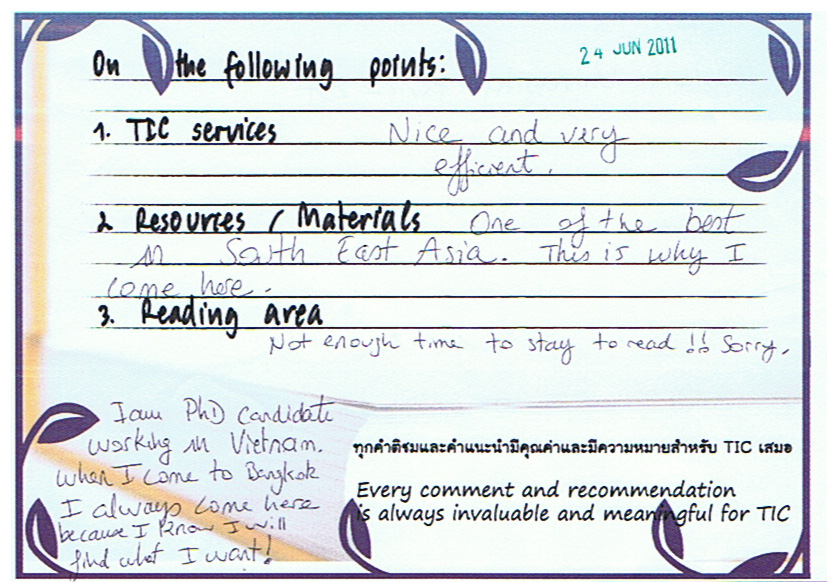 24 JUN 2011
On the following points:
1. TIC services Nice and very
efficient.
2 Resources / Materials One of the best
in South East Asia. This is why I
come here.
3. Reading area
Not enough time to stay to read !! Sorry.
I am PhD candidate
working in Vietnam.
When I come to Bangkok
I always come here
because I know I will
find what I want!
ทุกคำติชมและคำแนะนำมีคุณค่าและมีความหมายสำหรับ TIC เสมอ
Every comment and recommendation
is always invaluable and meaningful for TIC